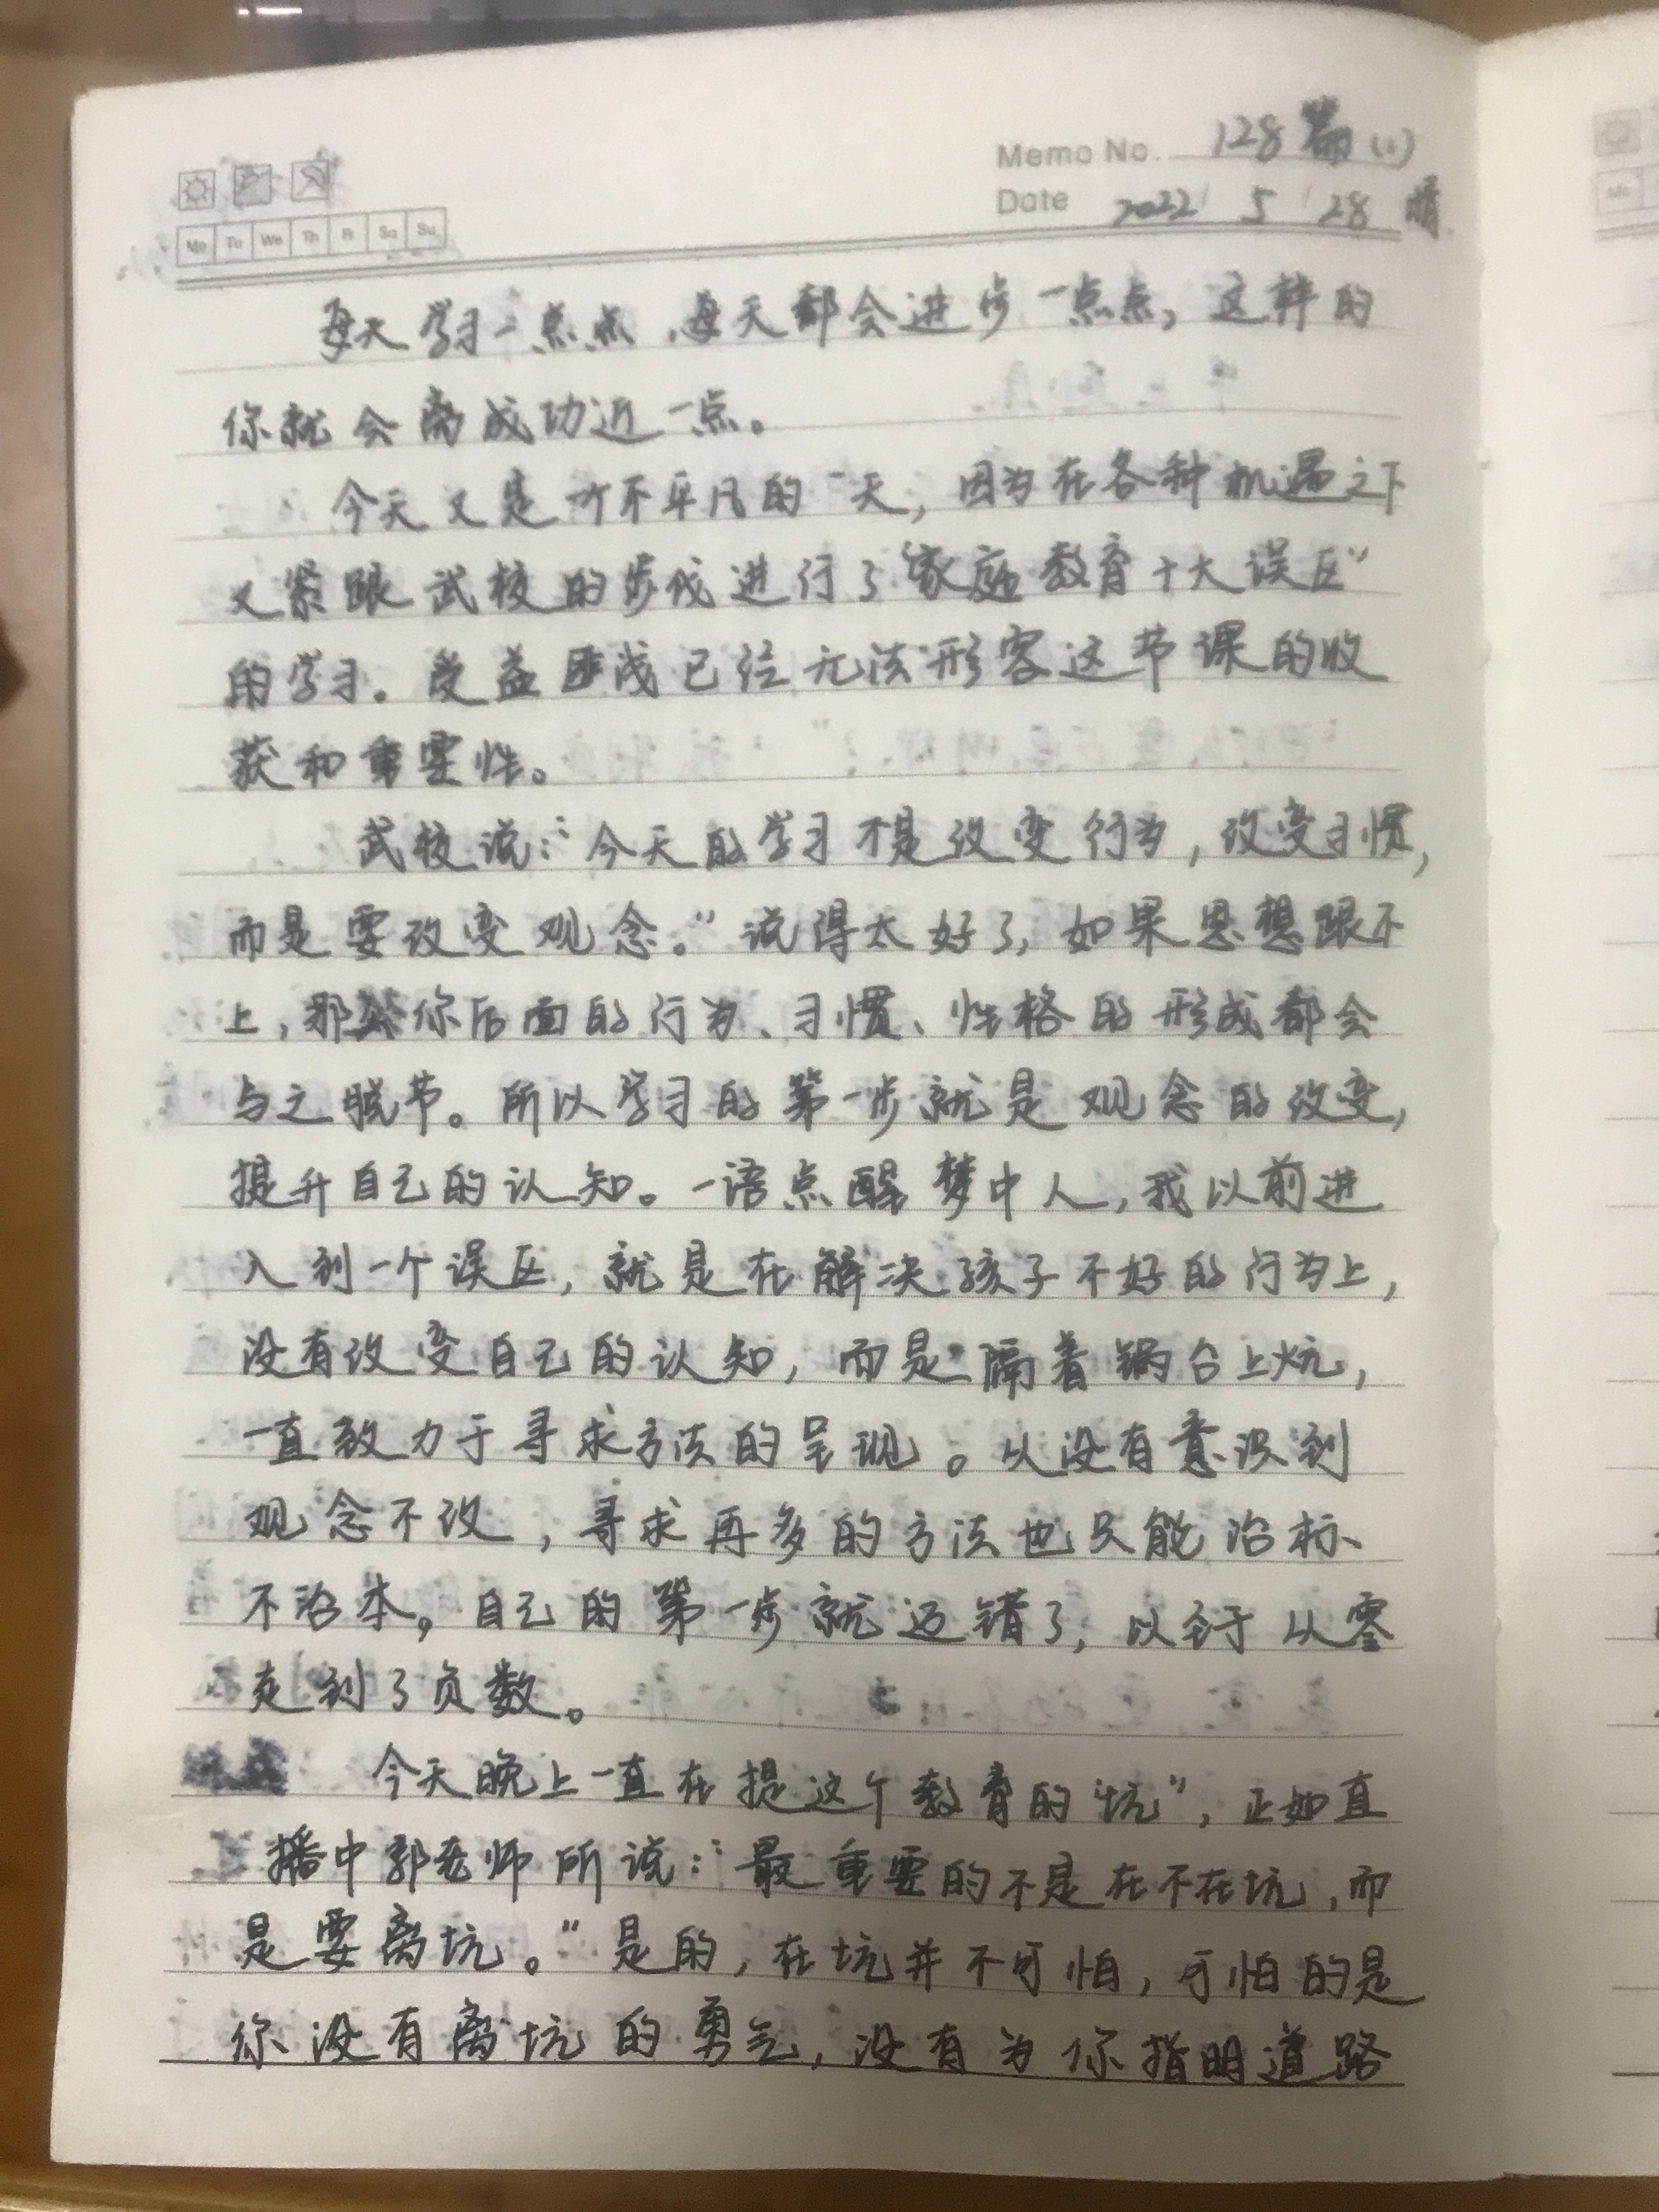 Memo No. 128篇(1)
Date 2022 / 5 / 28 晴
Mo Tu We Th Fr Sa Su
每天学习一点点,每天都会进步一点点,这样的
你就会离成功近一点。
今天又是一个不平凡的一天,因为在各种机遇之下
又紧跟武校的步伐进行了“家庭教育十大误区”
的学习。受益匪浅已经无法形容这节课的收
获和重要性。
武校说:“今天的学习不是改变行为,改变习惯,
而是要改变观念。”说得太好了,如果思想跟不
上,那么你后面的行为、习惯、性格的形成都会
与之脱节。所以学习的第一步就是观念的改变,
提升自己的认知。一语点醒梦中人,我以前进
入到一个误区,就是在解决孩子不好的行为上,
没有改变自己的认知,而是隔着锅台上炕,
一直致力于寻求方法的呈现。从没有意识到
观念不改,寻求再多的方法也只能治标、
不治本。自己的第一步就迈错了,以至于从零
走到了负数。
今天晚上一直在提这个教育的“坑”,正如直
播中郭老师所说:“最重要的不是在不在坑,而
是要离坑。”是的,在坑并不可怕,可怕的是
你没有离坑的勇气,没有为你指明道路